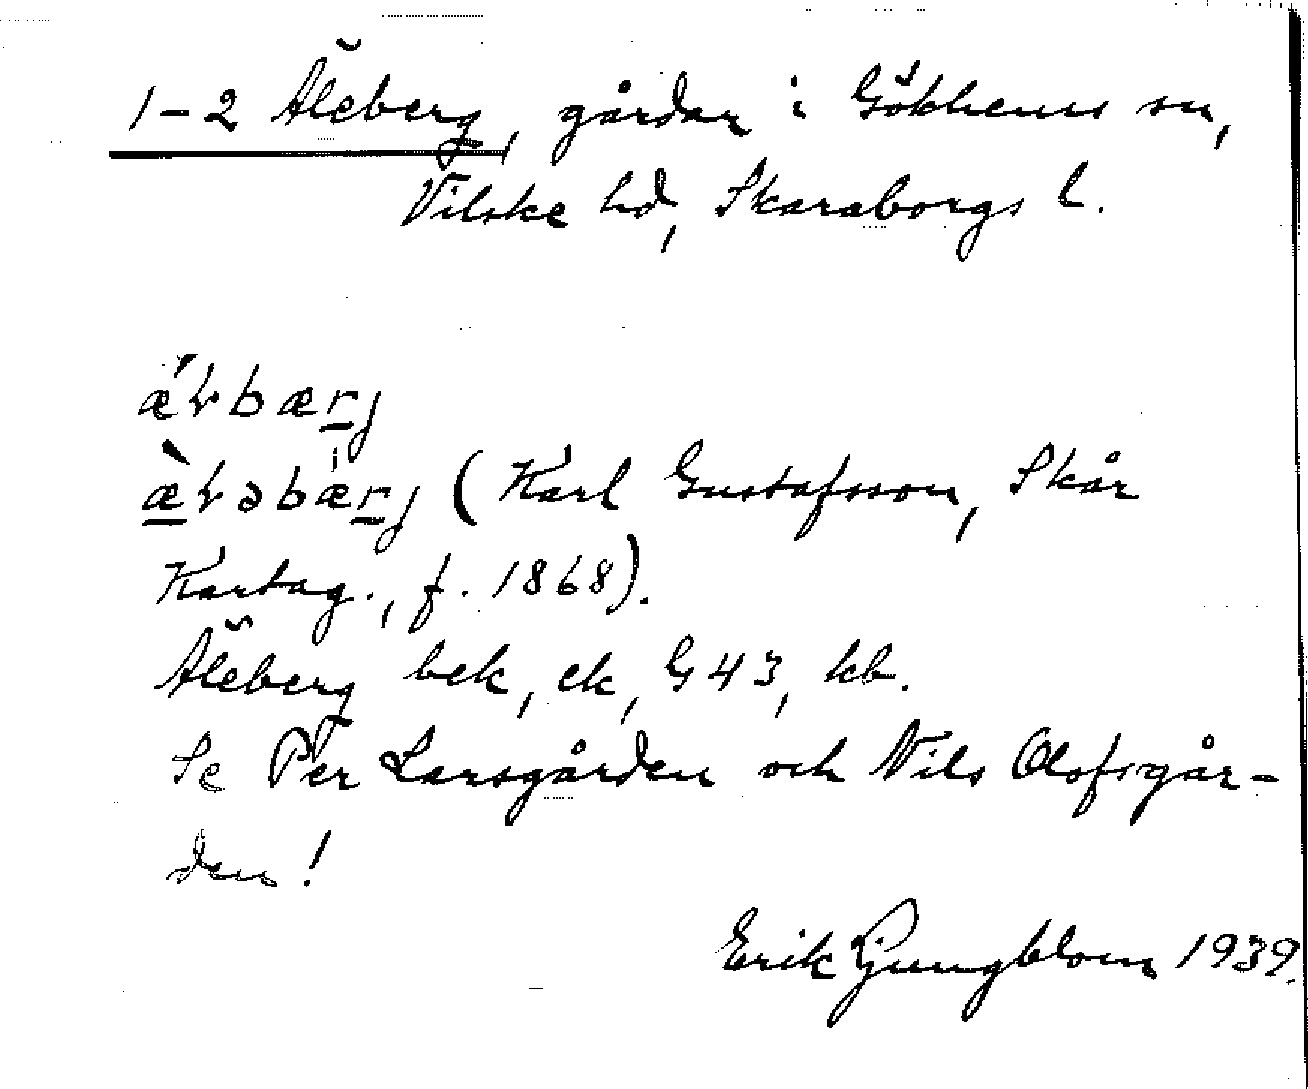 1-2 Äleberg, gårdar i Gökhems sn,
Vilske hd, Skaraborgs l.
ǽƚbærj
æ̀ƚəbærj (Karl Gustafsson, Skår
Kartag., f. 1868).
Äleberg bek, ek, G43, kb.
Se Per Larsgården och Nils Olofsgår-
den!
Erik Ljungblom 1939.